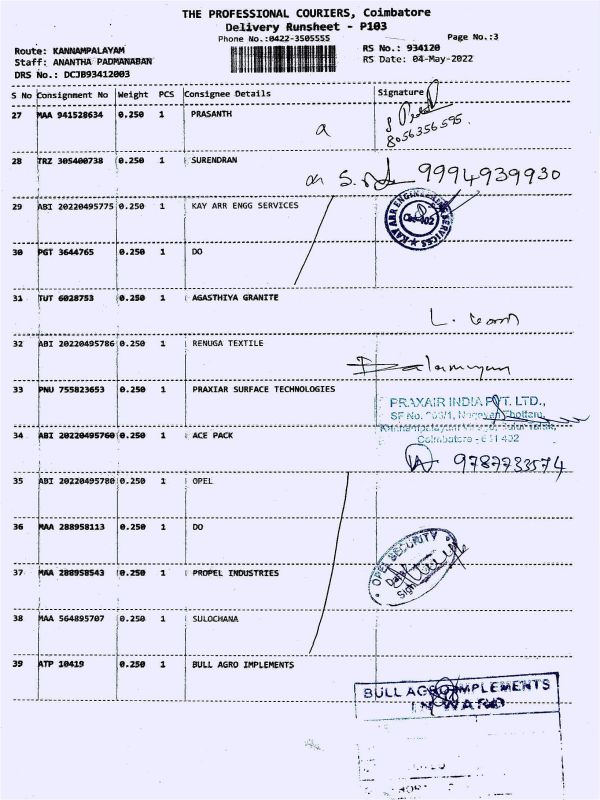 THE PROFESSIONAL COURIERS, Coimbatore
Delivery Runsheet - P103
Phone No.:0422-3505555
Page No.:3
Route: KANNAMPALAYAM
RS No.: 934120
Staff: ANANTHA PADMANABAN
RS Date: 04-May-2022
DRS No.: DCJB93412003
S No Consignment No Weight PCS Consignee Details Signature
27 MAA 941528634 0.250 1 PRASANTH
8056356595
28 TRZ 305400738 0.250 1 SURENDRAN
9994939930
29 ABI 20220495775 0.250 1 KAY ARR ENGG SERVICES
KAY ARR ENGINEERING SERVICES
30 PGT 3644765 0.250 1 DO
31 TUT 6028753 0.250 1 AGASTHIYA GRANITE
32 ABI 20220495786 0.250 1 RENUGA TEXTILE
33 PNU 755823653 0.250 1 PRAXIAR SURFACE TECHNOLOGIES
PRAXAIR INDIA PVT. LTD.,
SF No.
Coimbatore - 641 402
34 ABI 20220495760 0.250 1 ACE PACK
9787733574
35 ABI 20220495780 0.250 1 OPEL
36 MAA 288958113 0.250 1 DO
OPEL SECURITY
Date
Sign
37 MAA 288958543 0.250 1 PROPEL INDUSTRIES
38 MAA 564895707 0.250 1 SULOCHANA
39 ATP 10419 0.250 1 BULL AGRO IMPLEMENTS
BULL AGRO IMPLEMENTS
INWARD